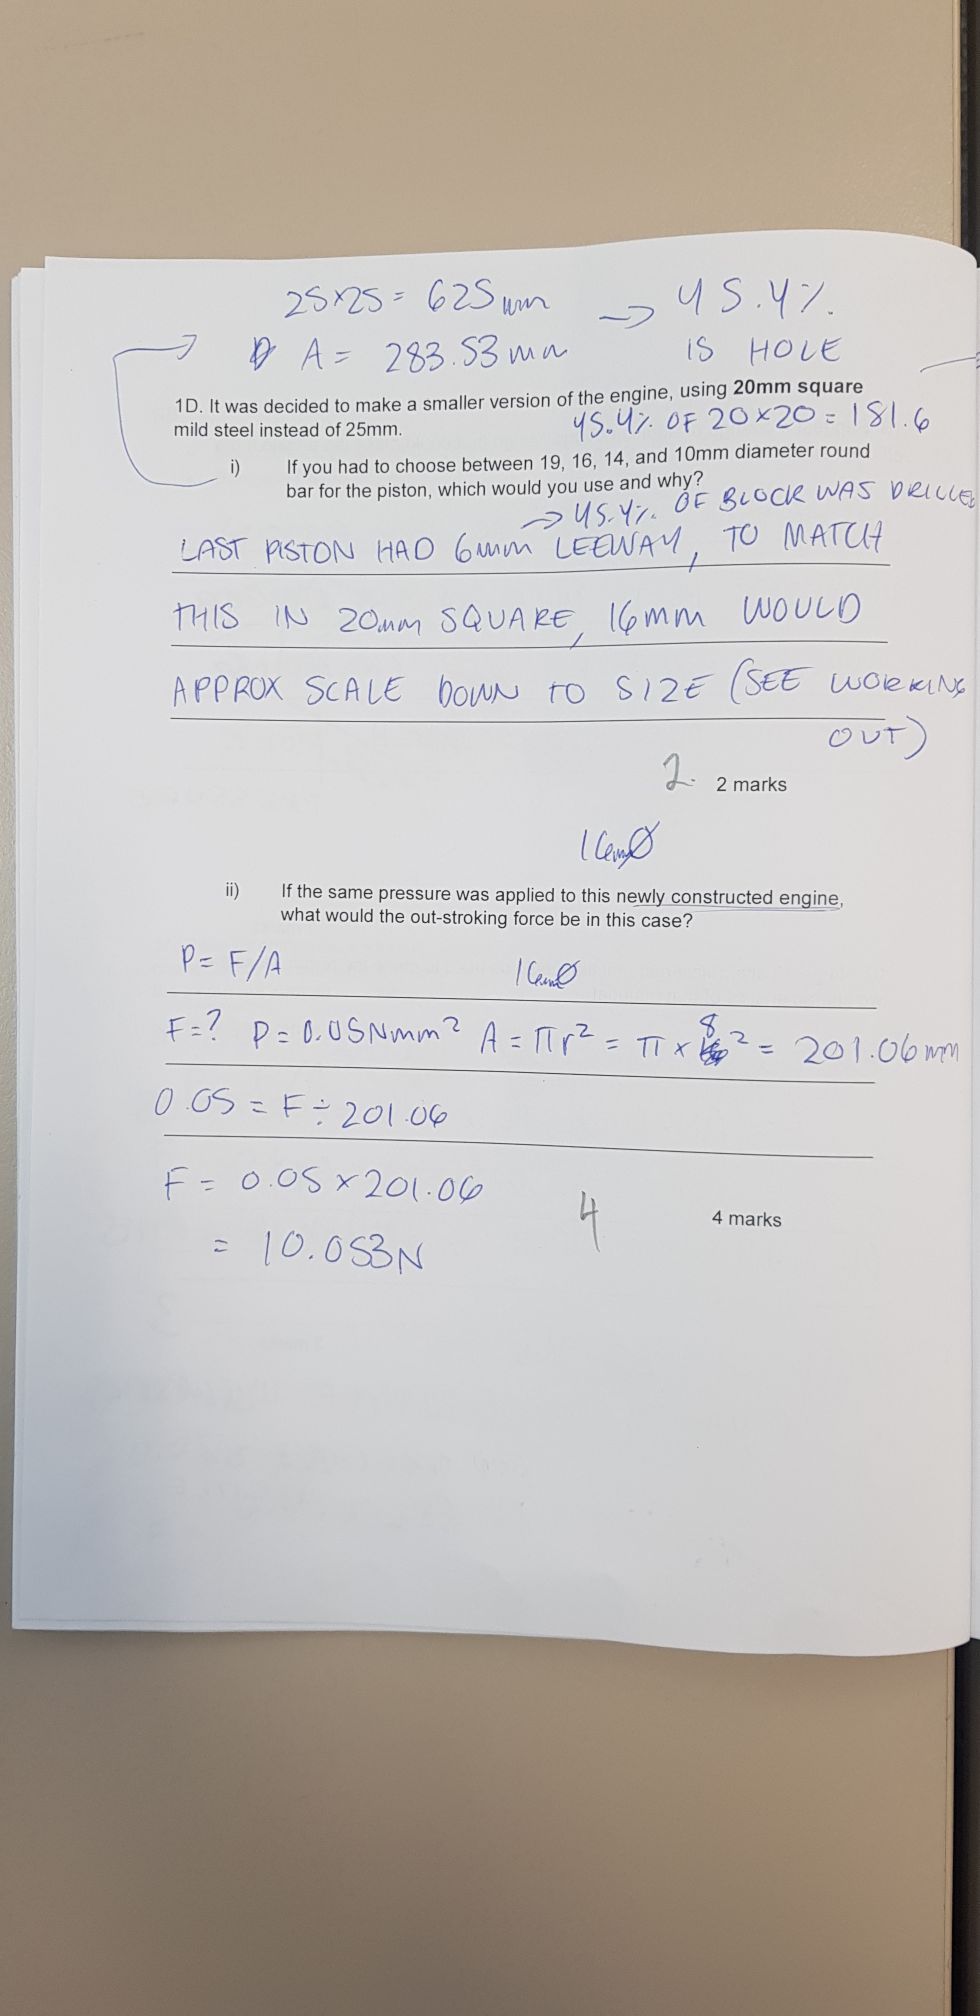 25×25 = 625mm → 45.4%
A = 283.53mm IS HOLE
1D. It was decided to make a smaller version of the engine, using 20mm square
mild steel instead of 25mm.
45.4% OF 20×20 = 181.6
i) If you had to choose between 19, 16, 14, and 10mm diameter round
bar for the piston, which would you use and why?
→ 45.4% OF BLOCK WAS DRILLED
LAST PISTON HAD 6mm LEEWAY, TO MATCH
THIS IN 20mm SQUARE, 16mm WOULD
APPROX SCALE DOWN TO SIZE (SEE WORKING
OUT)
2. 2 marks
16mmØ
ii) If the same pressure was applied to this newly constructed engine,
what would the out-stroking force be in this case?
P = F/A 16mmØ
F = ? P = 0.05Nmm² A = πr² = π × 8² = 201.06mm
0.05 = F ÷ 201.06
F = 0.05 × 201.06
4 4 marks
= 10.053N